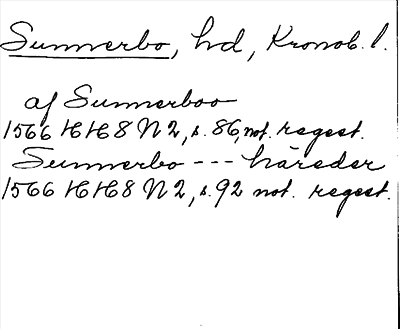 Sunnerbo, hd, Kronob. l.
af Sunnerboo
1566 HH8 N2, s. 86, not. regest.
Sunnerbo --- häreder
1566 HH8 N2, s. 92 not. regest.